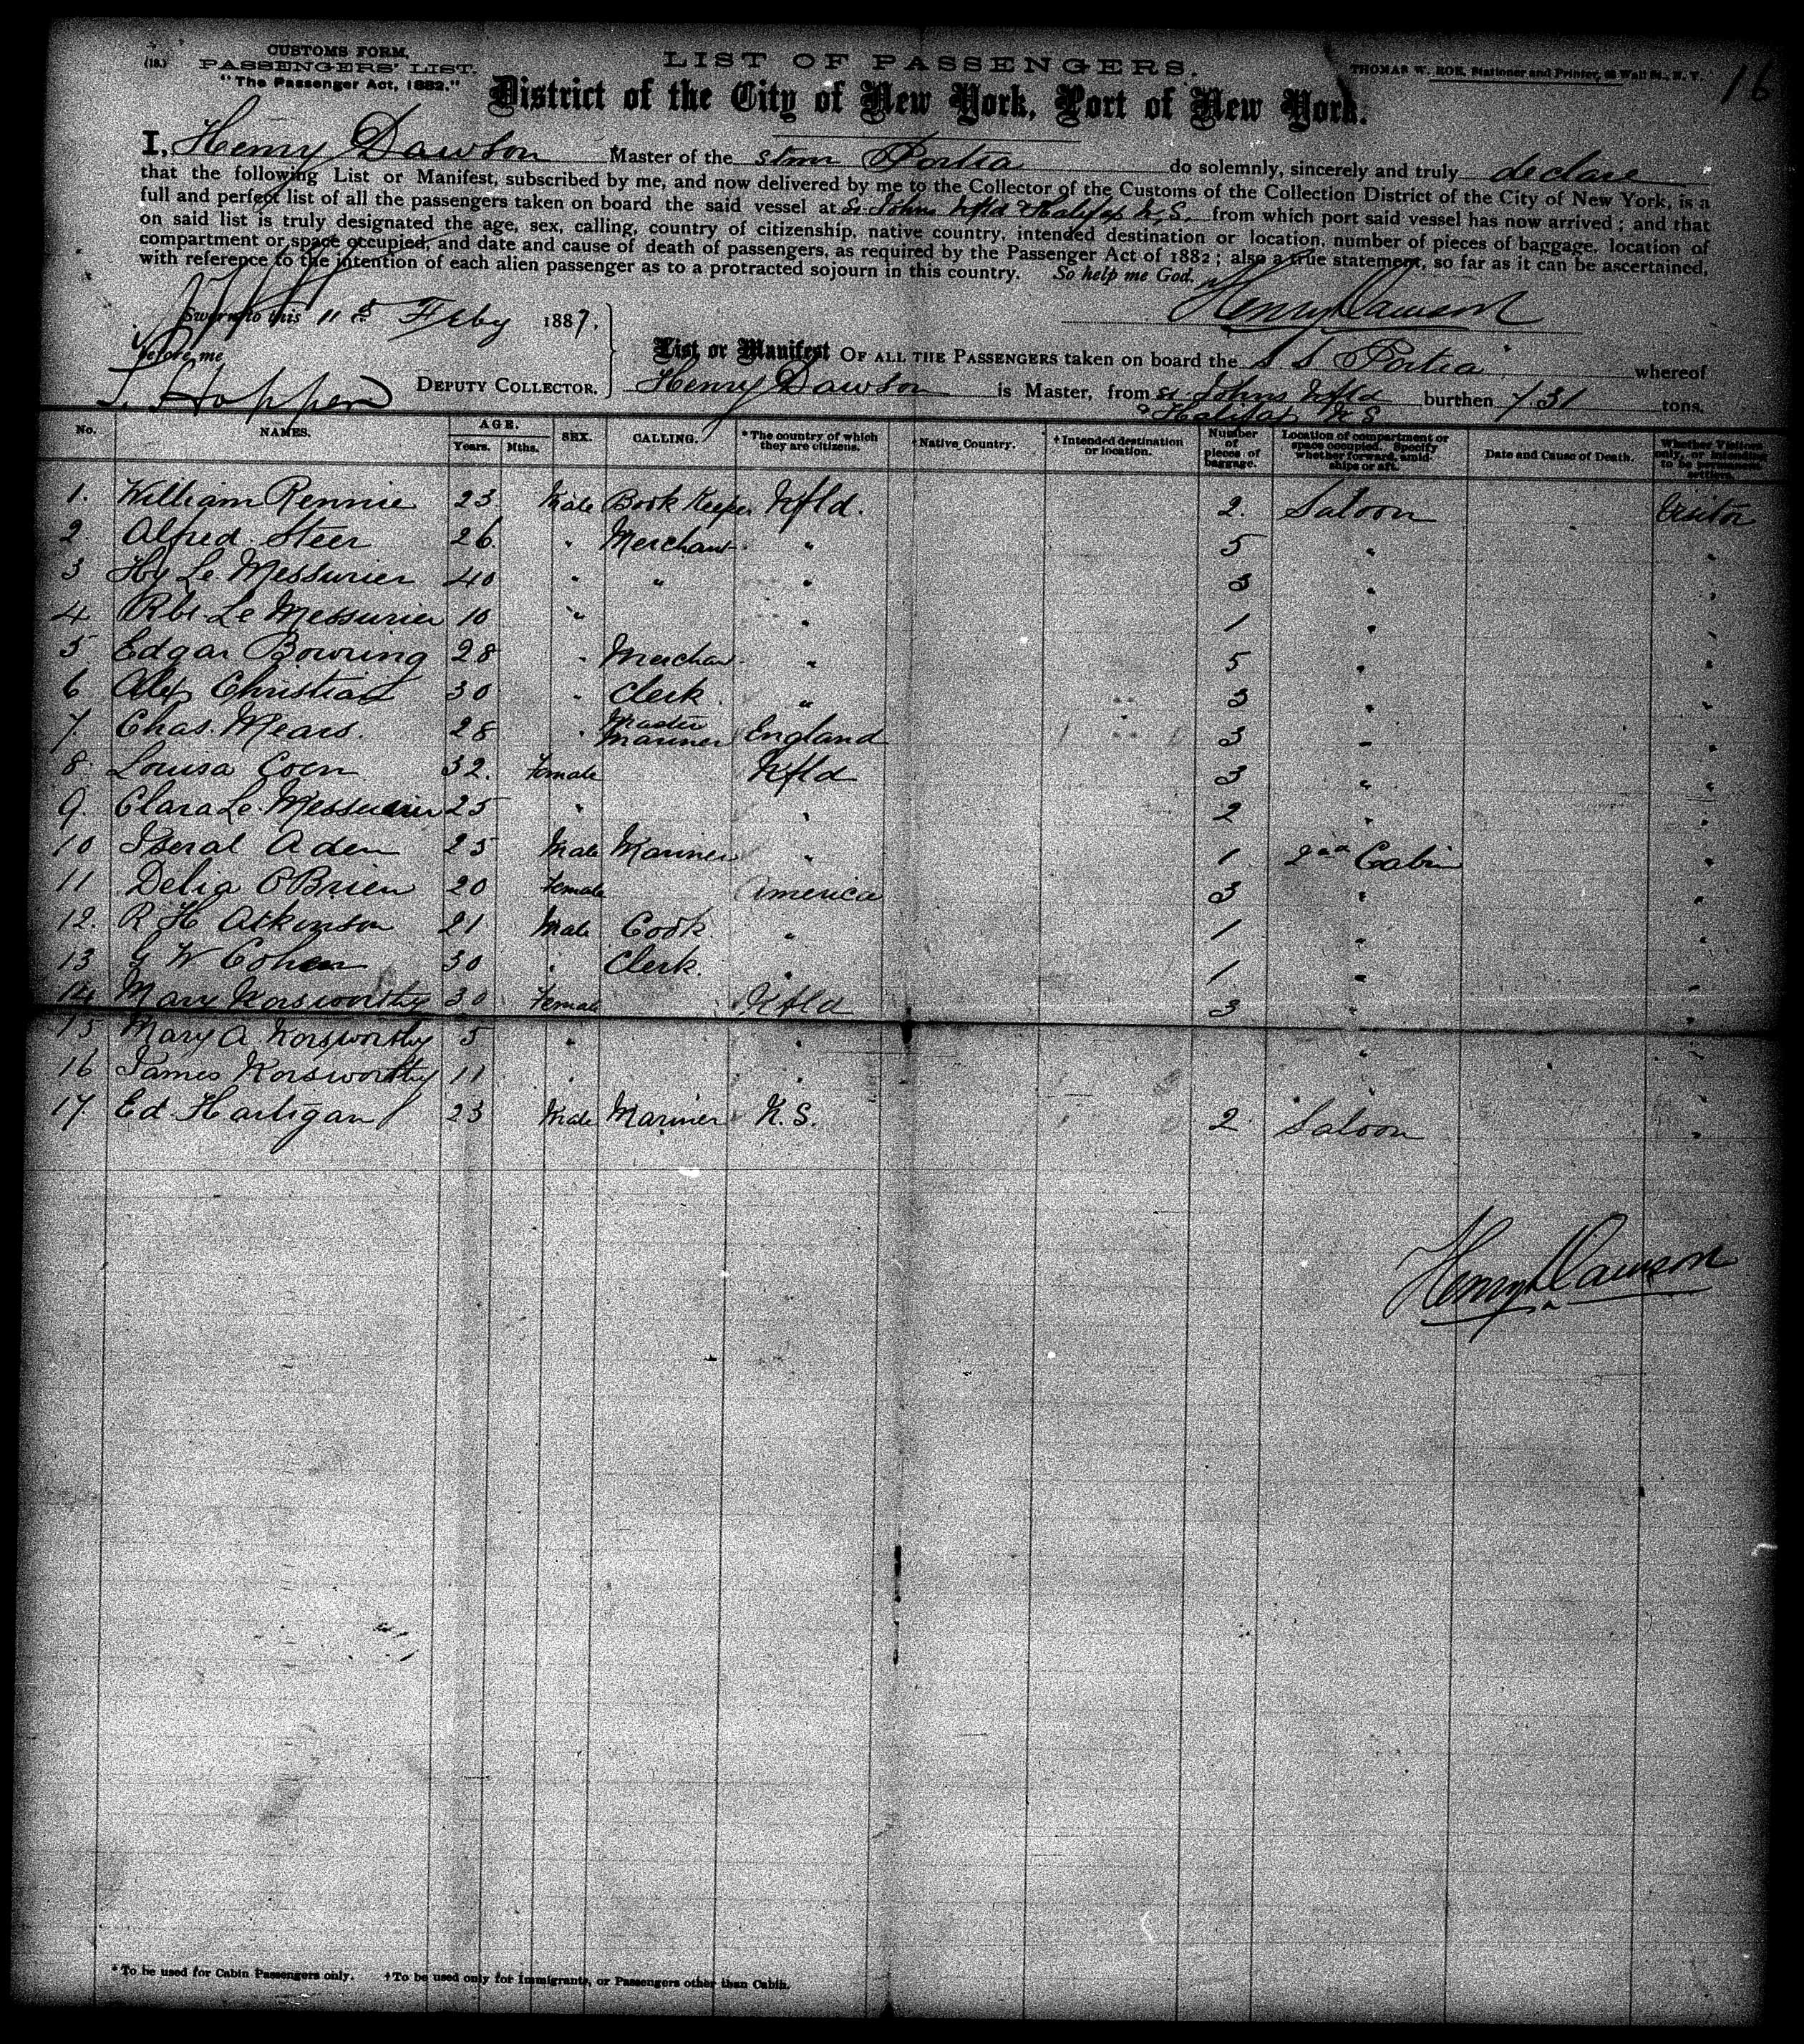 CUSTOMS FORM.
(18.) PASSENGERS' LIST.
"The Passenger Act, 1882."
LIST OF PASSENGERS.
THOMAS W. ROE, Stationer and Printer, Wall St., N. Y.
16
District of the City of New York, Port of New York.
I, Henry Dawson Master of the stmr Portia do solemnly, sincerely and truly declare
that the following List or Manifest, subscribed by me, and now delivered by me to the Collector of the Customs of the Collection District of the City of New York, is a
full and perfect list of all the passengers taken on board the said vessel at St. Johns Nfld & Halifax N.S. from which port said vessel has now arrived; and that
on said list is truly designated the age, sex, calling, country of citizenship, native country, intended destination or location, number of pieces of baggage, location of
compartment or space occupied, and date and cause of death of passengers, as required by the Passenger Act of 1882; also a true statement, so far as it can be ascertained,
with reference to the intention of each alien passenger as to a protracted sojourn in this country. So help me God.
Henry Dawson
Sworn to this 11th Feby 1887.
before me
Hopper DEPUTY COLLECTOR.
List or Manifest OF ALL THE PASSENGERS taken on board the S S Portia whereof
Henry Dawson is Master, from St. Johns Nfld burthen 731 tons.
& Halifax N S
No. NAMES. AGE. Years. Mths. SEX. CALLING. *The country of which they are citizens. †Native Country. †Intended destination or location. Number of pieces of baggage. Location of compartment or space occupied. Specify whether forward, amidships or aft. Date and Cause of Death. Whether Visitors only, or intending to be permanent settlers.
1. William Rennie 23 Male Book Keeper Nfld. 2. Saloon Visitor
2. Alfred Steer 26 " Merchant " 5 " "
3 Hy Le Messurier 40 " " " 3 " "
4 Rbt Le Messurier 10 " " 1 " "
5 Edgar Bowring 28 " Merchan " 5 " "
6 Alex Christian 30 " Clerk " 3 " "
7. Chas. Mears. 28 " Master Mariner England 3 " "
8 Louisa Coen 32. Female Nfld 3 " "
9. Clara Le Messurier 25 " " 2 " "
10 Iseral Aden 25 Male Mariner " 1 2nd Cabin "
11 Delia O'Brien 20 Female America 3 " "
12. R H Atkinson 21 Male Cook " 1 " "
13 G W Cohen 30 " Clerk. " 1 " "
14 Mary Norsworthy 30 Female Nfld 3 " "
15 Mary A Norsworthy 5 " " " "
16 James Norsworthy 11 " " " "
17. Ed Hartigan 23 Male Mariner N.S. 2 Saloon "
Henry Dawson
*To be used for Cabin Passengers only. †To be used only for Immigrants, or Passengers other than Cabin.